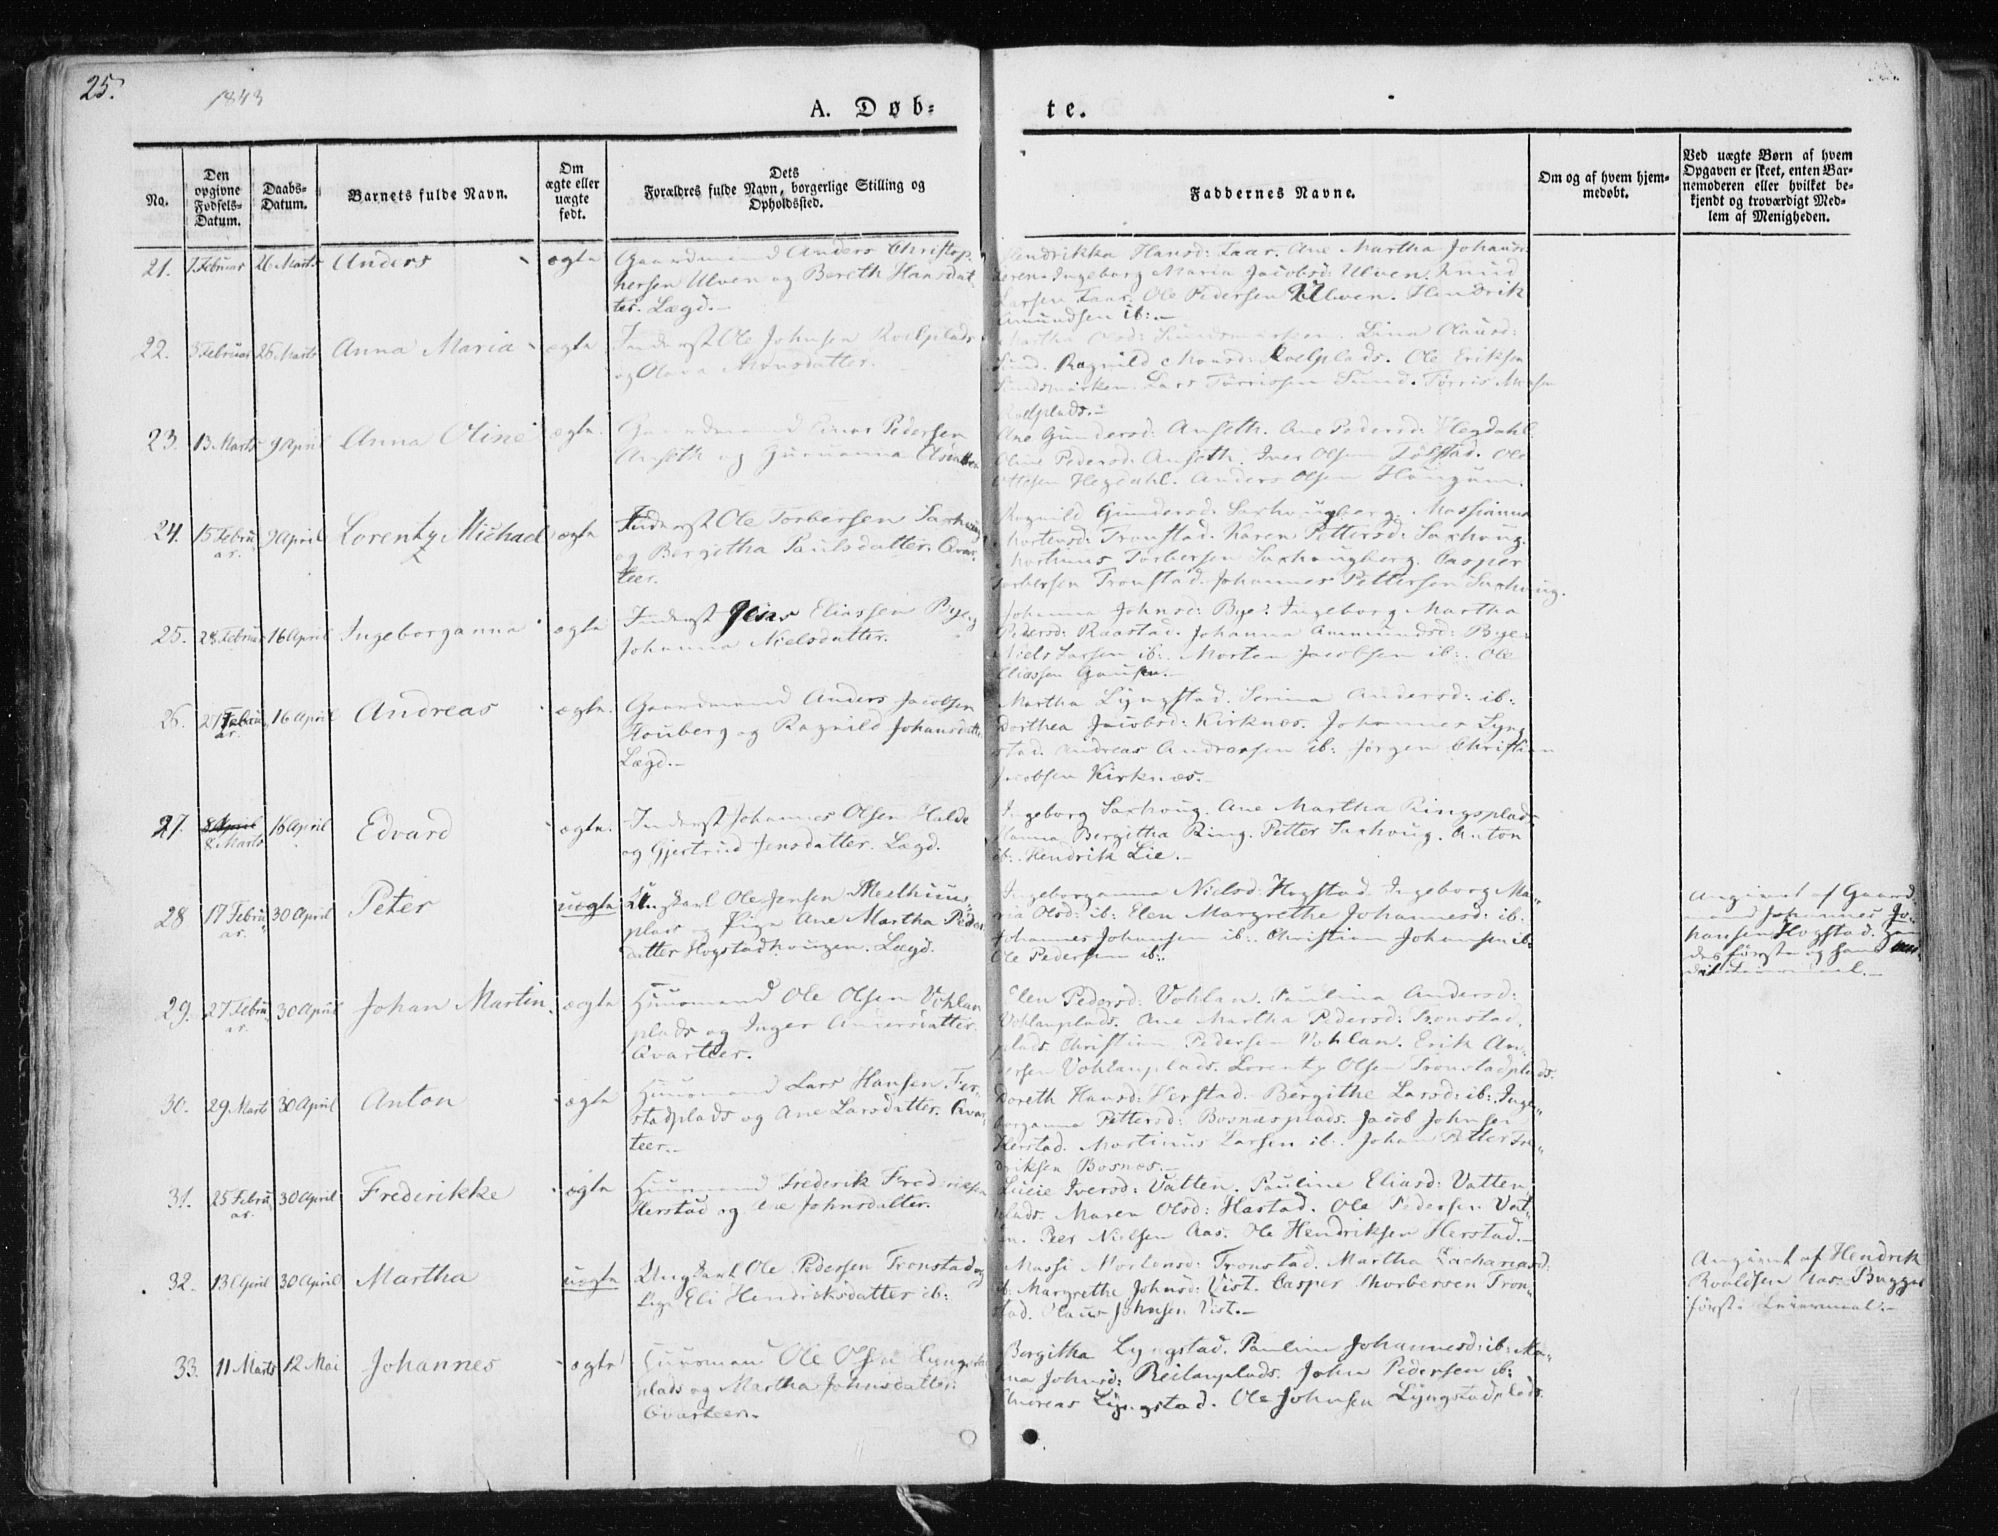 25.
1843
A. Døb=
te.
No.
Den opgivne Fødsels-Datum.
Daabs-Datum.
Barnets fulde Navn.
Om ægte eller uægte født.
Dets Forældres fulde Navn, borgerlige Stilling og Opholdssted.
Faddernes Navne.
Om og af hvem hjem-
medøbt.
Ved uægte Børn af hvem
Opgaven er skeet, enten Bar-
nemoderen eller hvilket be-
kjendt og troværdigt Med-
lem af Menigheden.
21. 26 Marts Anders ægte
Gaardmand Anders Christop
hersen Ulven og Bereth Hansdat
ter. Lægd.
Hendrikka Hansd: Faar. Ane Martha Johans
Ingeborg Maria Jacobsd: Ulven. Knud
Larsen Faar. Ole Pedersen Ulven. Hendrik
Amundsen ib:
22. 3 Februar 26 Marts Anna Maria ægte
Inderst Ole Johnsen Roelplads
og Olava Monsdatter.
Martha Olsd: Lina Olausd:
Sund. Ragnild Monsd: Roelplads. Ole Eriksen
Lars Tørrissen Sund. Tørris
Roelplads.
23. 13 Marts 9 April Anna Oline ægte.
Gaardmand Pedersen
Anseth og Guruanna
Ane Gundersd: Anseth. Ane Pedersd: Hegdahl
Oline Pedersd: Anseth. Iver Olsen. Ole
Ottesen Hegdahl. Anders Olsen
24. 15 Febru 9 April Lorentz Michael ægte
ar.
Inderst Ole Torbersen Saxhoug
og Bergitha Paulsdatter. Qvar
teer.
Ragnild Gundersd: Saxhougberg. Massianna
Mortensd: Tronstad. Karen Pettersd: Saxhoug.
Mortinus Torbersen Saxhougberg. Casper
Torbersen Tronstad. Johannes Pettersen Saxhoug.
25. 28 Februar 16 April Ingeborganna ægte
Inderst Jens Eliassen Bye og
Johanna Nielsdatter.
Johanna Johnsd: Bye. Ingeborg Martha
Pedersd: Raastad. Johanna Ammundsd: Bye.
Niels Larsen ib:. Morten Jacobsen ib:. Ole
Eliassen
26. 16 April Andreas ægte.
ar.
Gaardmand Anders Jacobsen
og Ragnild Johansdatter
Lægd.
Martha Lyngstad. Serina Andersd: ib:
Dorthea Jacobsd: Kirknes. Johannes Lyng
stad. Andreas Andersen ib: Jørgen Christian
Jacobsen Kirknæs.
27. 8 April 16 April Edvard ægte.
8 Marts
Inderst Johannes Olsen Halde
og Gjertrud Jensdatter. Lægd.
Ingeborg Saxhoug. Ane Martha Ringsplads
Hanna Bergitha Ring. Petter Saxhoug. Anton
ib:. Hendrik Lie.
28 17 Febru 30 April Peter uægte
ar.
Ungkarl Ole Jensen Meelhuus
plads og Pige Ane Martha Peders
datter Hogstadhougen. Lægd.
Ingeborganna Nielsd: Hogstad. Ingeborg Ma-
ria Olsd: ib: Elen Margrethe Johannesd: ib:
Johannes Johansen ib:. Christian Johansen ib:
Ole Pedersen ib:.
Angivet af Gaard
mand Johannes Jo-
hansen Hogstad.
første og
29. 27 Febru 30 April Johan Martin. ægte
ar.
Huusmand Ole Olsen Vohlan
plads og Inger Andersdatter.
Qvarteer.
Elen Pedersd: Vohlan. Paulina Andersd:
Vohlanplads. Ane Martha Pedersd: Tronstad
plads. Christian Pedersen Vohlan. Erik An-
dersen Vohlanplads. Lorentz Olsen Tronstadplads.
30. 29 Marts 30 April Anton ægte
Huusmand Lars Hansen Her
stadplads og Ane Larsdatter. Qvar
teer.
Doreth Hansd: Herstad. Bergithe Larsd: ib: Inge-
borganna Pettersd: Bosnæsplads. Jacob Johnsen
Herstad. Martinus Larsen ib:. Johan Petter Fre-
driksen Bosnæs.
31. 25 Febru 30 April Frederikke ægte
ar.
Huusmand Frederik Fredriksen
Herstad og Johnsdatter.
Lucie Iversd: Vatten. Pauline Eliasd: Vatten
plads. Maren Olsd: Hastad. Ole Pedersen Vat-
en. Peer Nielsen Aas. Ole Hendriksen Herstad.
32. 13 April 30 April Martha uægte
Ungkarl Ole Pedersen Tronstad og
Pige Eli Hendriksdatter ib:
Massi Mortensd: Tronstad. Martha Zachariasd:
ib: Margrethe Johnsd: Vist. Casper Thorbersen Tron-
stad. Olaus Johnsen Vist.
Angivet af Hendrik
Roaldsen
første Leiermaal.
33. 11 Marts 12 Mai Johannes ægte
Huusmand Ole Olsen Lyngstad
plads og Martha Johnsdatter.
Qvarteer.
Bergitha Lyngstad. Pauline Johannesd: ib: Ma-
Johnsd: Reitanplads. John Pedersen ib:
Andreas Lyngstad. Ole Johnsen Lyngstadplads.